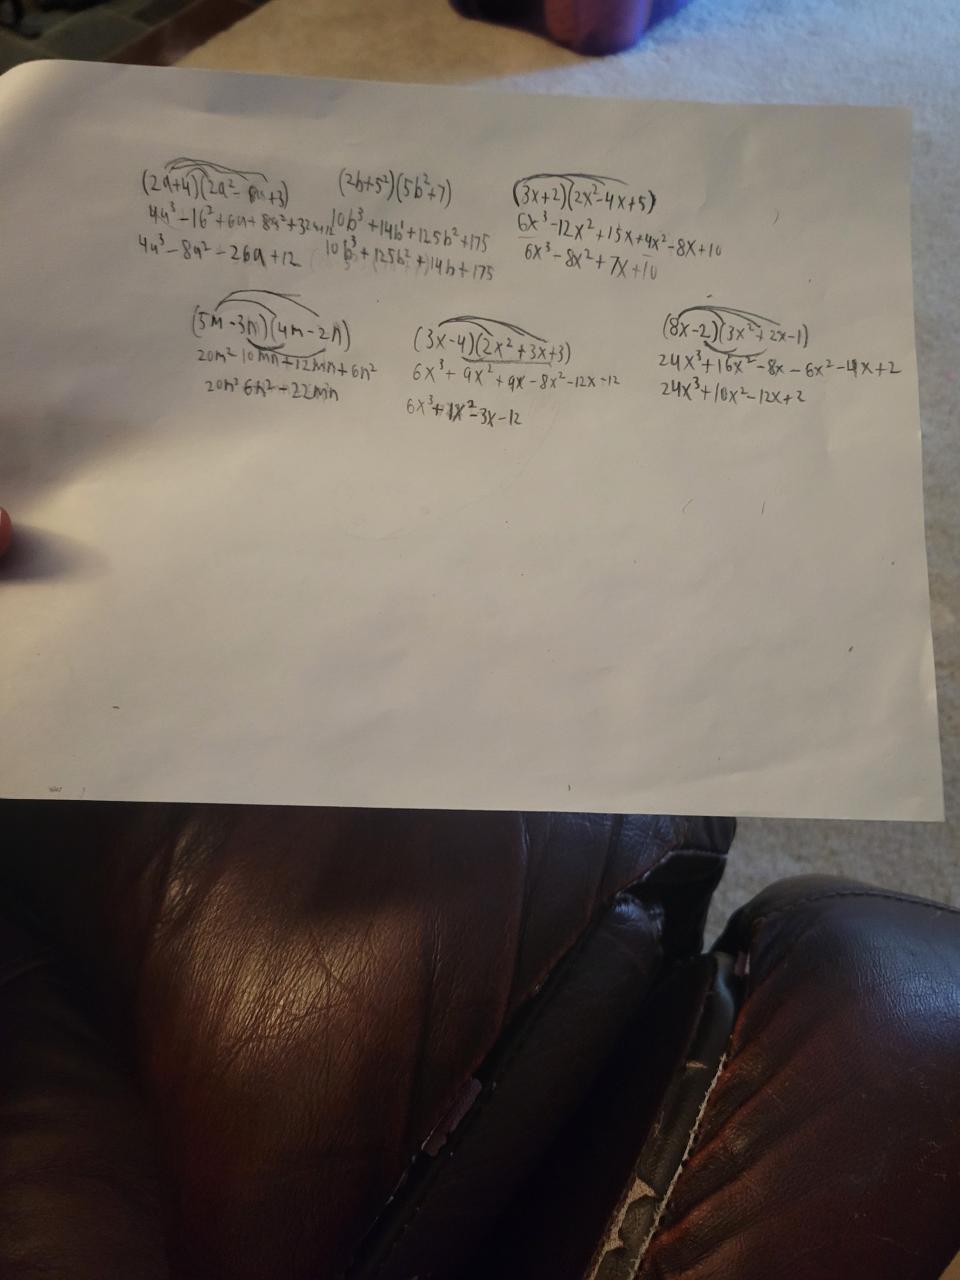 (2a+4)(2a²- 8a+3)
4a³-16²+6a+8a²+32a+12
4a³-8a²-26a+12
(2b+5²)(5b²+7)
10b³+14b+125b²+175
10b³+125b²+14b+175
(3x+2)(2x²-4x+5)
6x³-12x²+15x+4x²-8x+10
6x³-8x²+7x+10
(5m-3n)(4m-2n)
20m²-10mn+12mn+6n²
20m² 6n²-22mn
(3x-4)(2x²+3x+3)
6x³+9x²+9x-8x²-12x-12
6x³+1x²-3x-12
(8x-2)(3x²+2x-1)
24x³+16x²-8x-6x²-4x+2
24x³+10x²-12x+2